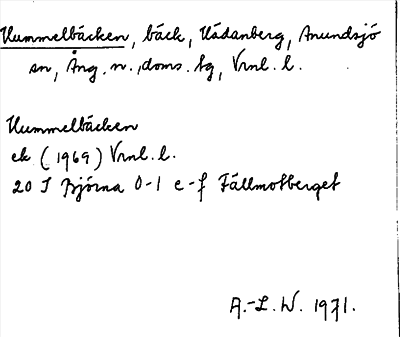 Hummelbäcken, bäck, Hädanberg, Anundsjö
sn, Ång. n., doms. hg, Vrnl. l.
Hummelbäcken
ek (1969) Vrnl. l.
20 I Björna 0-1 e-f Fällmotberget
A.-L. W. 1971.